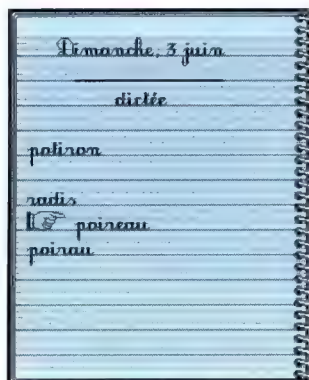 Dimanche, 3 juin
dictée
potiron
radis
poireau
poirau